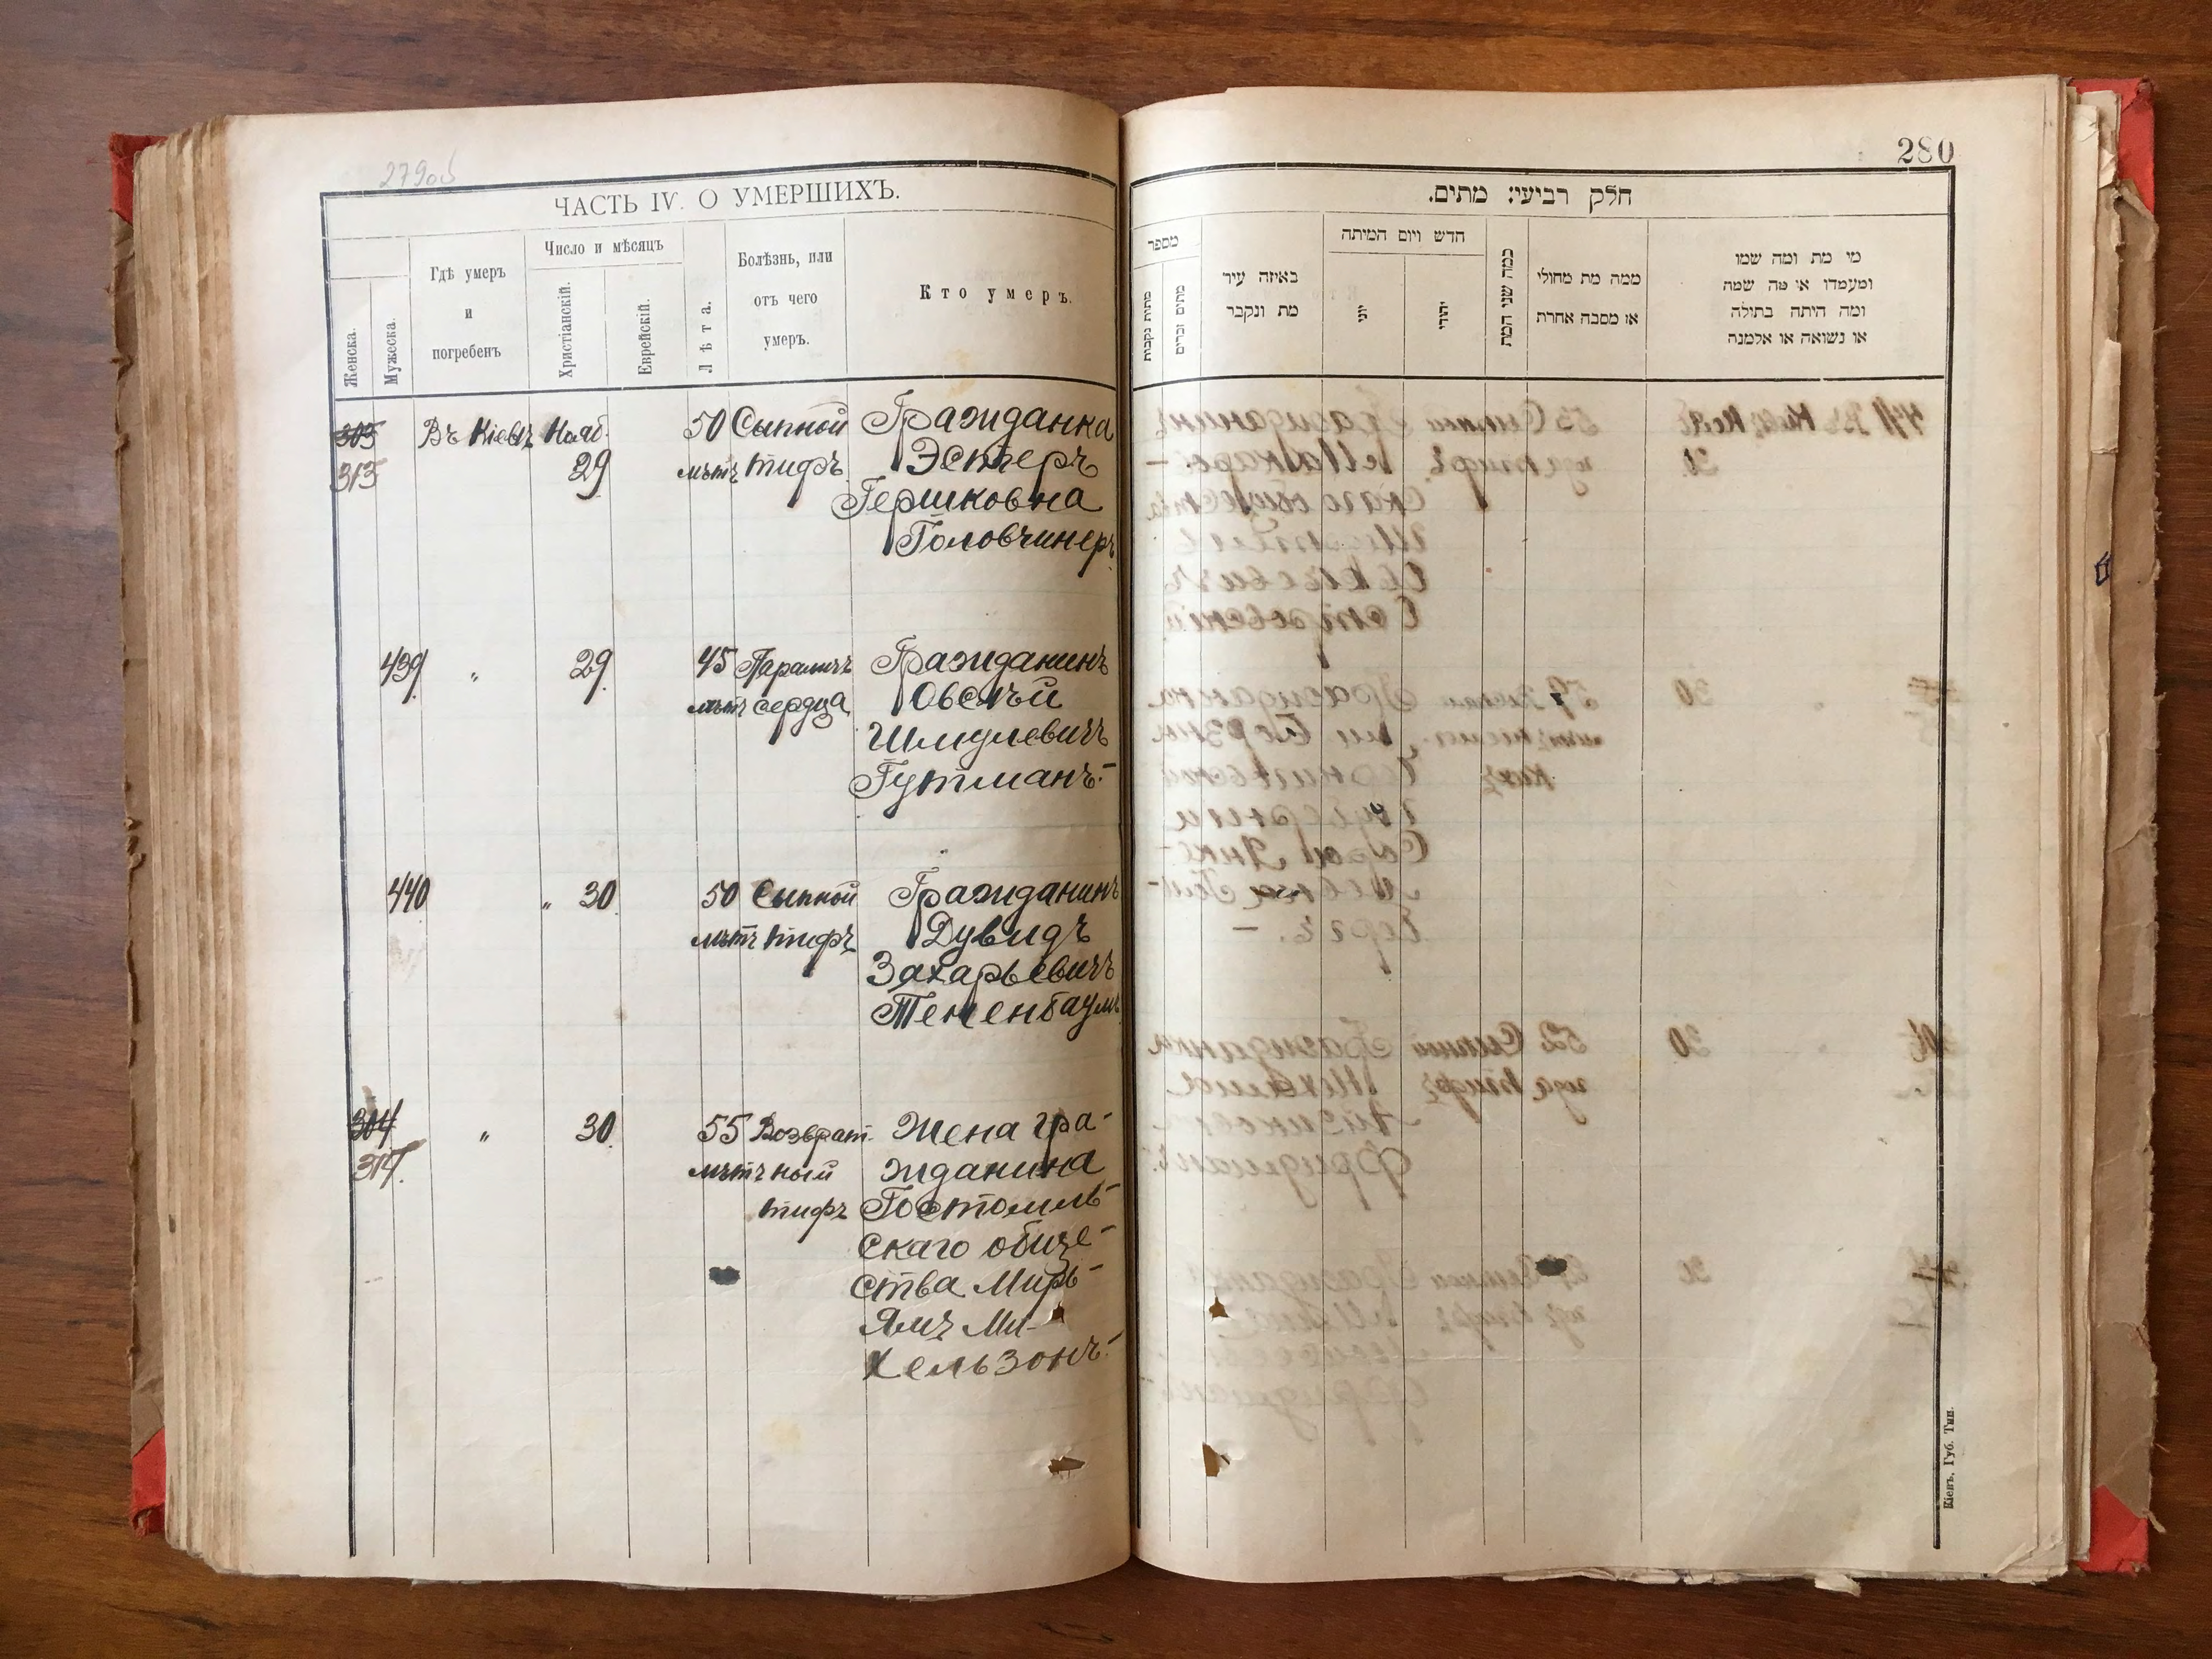 279об
ЧАСТЬ IV. О УМЕРШИХЪ.
Женска.
Мужеска.
Гдѣ умеръ
и
погребенъ
Число и мѣсяцъ
Христіанскій.
Еврейскій.
Лѣта.
Болѣзнь, или
отъ чего
умеръ.
Кто умеръ.
303 Въ Кіевѣ Нояб. 50 Сыпной Гражданка
313 29 лѣтъ тифъ Эстеръ
Гершковна
Головчинеръ
439 " 29 45 Параличъ Гражданинъ
лѣтъ сердца Овсѣй
Шмулевичъ
Гутманъ.-
440 " 30 50 Сыпной Гражданинъ
лѣтъ тифъ Дувидъ
Захарьевичъ
Тененбаумъ
304 " 30 55 Возврат- Жена гра-
314. лѣтъ ный жданина
тифъ Гостомль-
скаго обще-
ства Мирь-
ямъ Ми-
хельзонъ.-
280
חלק רביעי: מתים.
מספר
מתות נקבות
מתים זכרים
באיזה עיר
מת ונקבר
חדש ויום המיתה
יוני
יהודי
כמה שני המת
ממה מת מחולי
או מסבה אחרת
מי מת ומה שמו
ומעמדו או מה שמה
ומה היתה בתולה
או נשואה או אלמנה
Кіевъ, Губ. Тип.